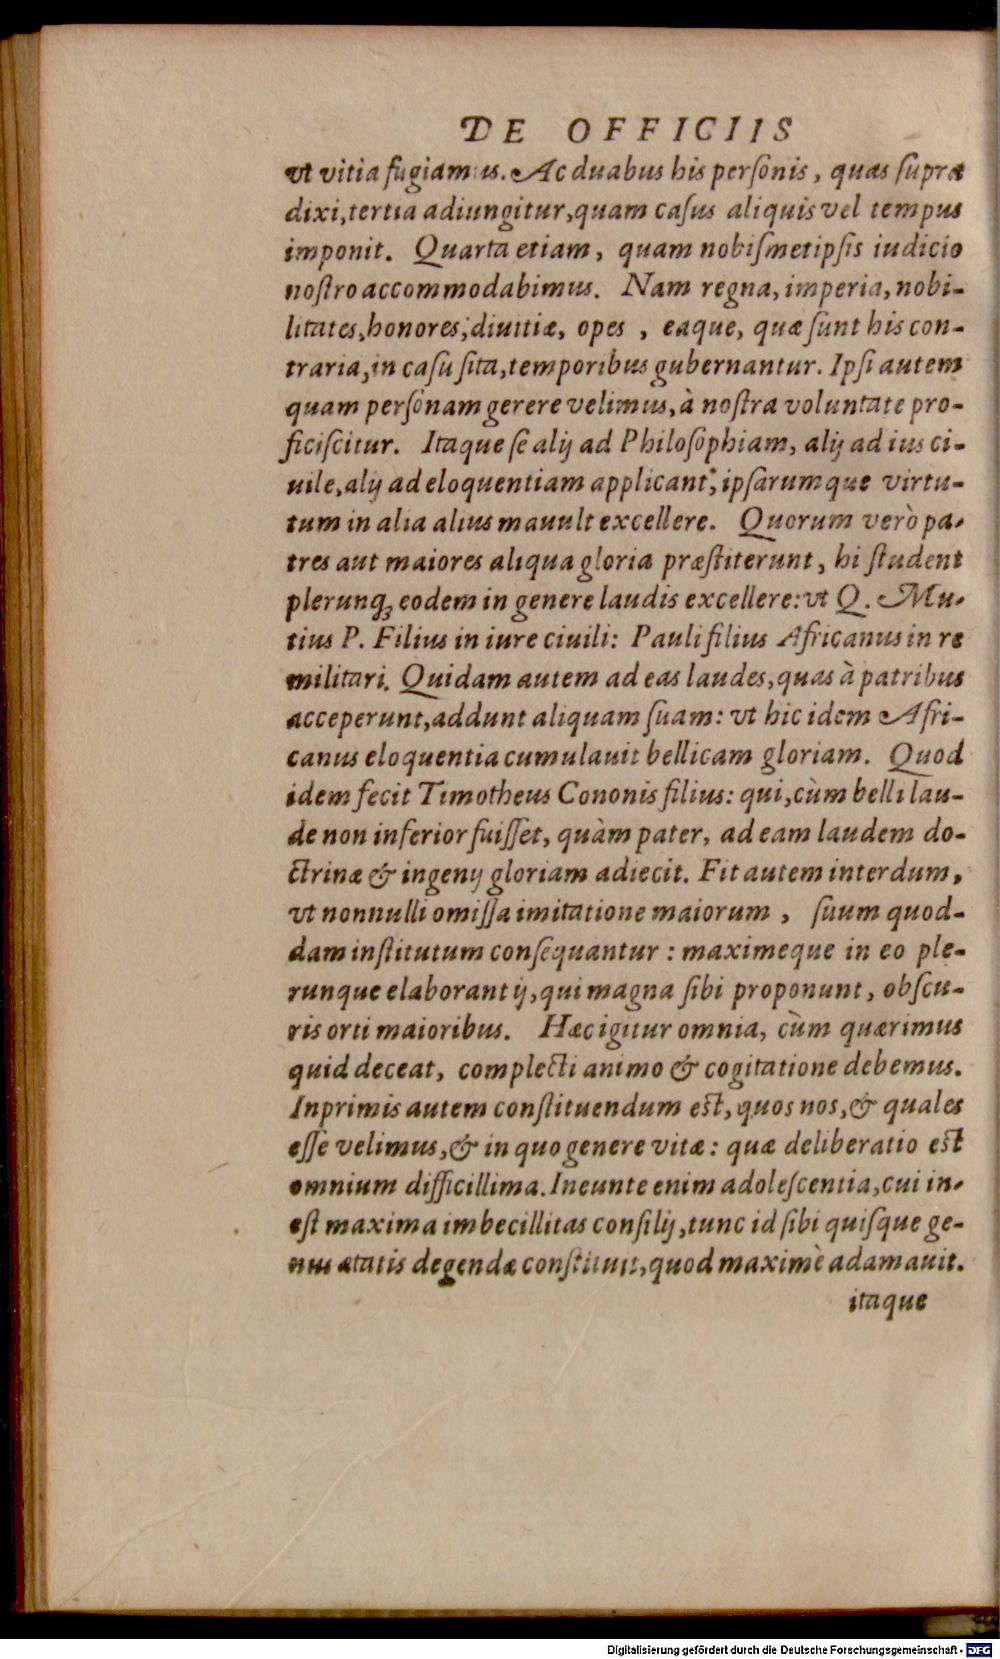 DE OFFICIIS
vt vitia fugiamus. Ac duabus his perſonis, quas ſupra
dixi, tertia adiungitur, quam caſus aliquis vel tempus
imponit. Quarta etiam, quam nobiſmetipſis iudicio
noſtro accommodabimus. Nam regna, imperia, nobi-
litates, honores, diuitiæ, opes, eaque, quæ ſunt his con-
traria, in caſu ſita, temporibus gubernantur. Ipſi autem
quam perſonam gerere velimus, à noſtra voluntate pro-
ficiſcitur. Itaque ſe alij ad Philoſophiam, alij ad ius ci-
uile, alij ad eloquentiam applicant; ipſarumque virtu-
tum in alia alius mauult excellere. Quorum verò pa-
tres aut maiores aliqua gloria præſtiterunt, hi ſtudent
plerunq; eodem in genere laudis excellere: vt Q. Mu-
tius P. Filius in iure ciuili: Pauli filius Africanus in re
militari. Quidam autem ad eas laudes, quas à patribus
acceperunt, addunt aliquam ſuam: vt hic idem Afri-
canus eloquentia cumulauit bellicam gloriam. Quod
idem fecit Timotheus Cononis filius: qui, cùm belli lau-
de non inferior fuiſſet, quàm pater, ad eam laudem do-
ctrinæ & ingenij gloriam adiecit. Fit autem interdum,
vt nonnulli omiſſa imitatione maiorum, ſuum quod-
dam inſtitutum conſequantur: maximeque in eo ple-
runque elaborant ij, qui magna ſibi proponunt, obſcu-
ris orti maioribus. Hæc igitur omnia, cùm quærimus
quid deceat, complecti animo & cogitatione debemus.
Inprimis autem conſtituendum eſt, quos nos, & quales
eſſe velimus, & in quo genere vitæ: quæ deliberatio eſt
omnium difficillima. Ineunte enim adoleſcentia, cui in-
eſt maxima imbecillitas conſilij, tunc id ſibi quiſque ge-
nus ætatis degendæ conſtituit, quod maximè adamauit.
itaque
Digitalisierung gefördert durch die Deutsche Forschungsgemeinschaft - DFG